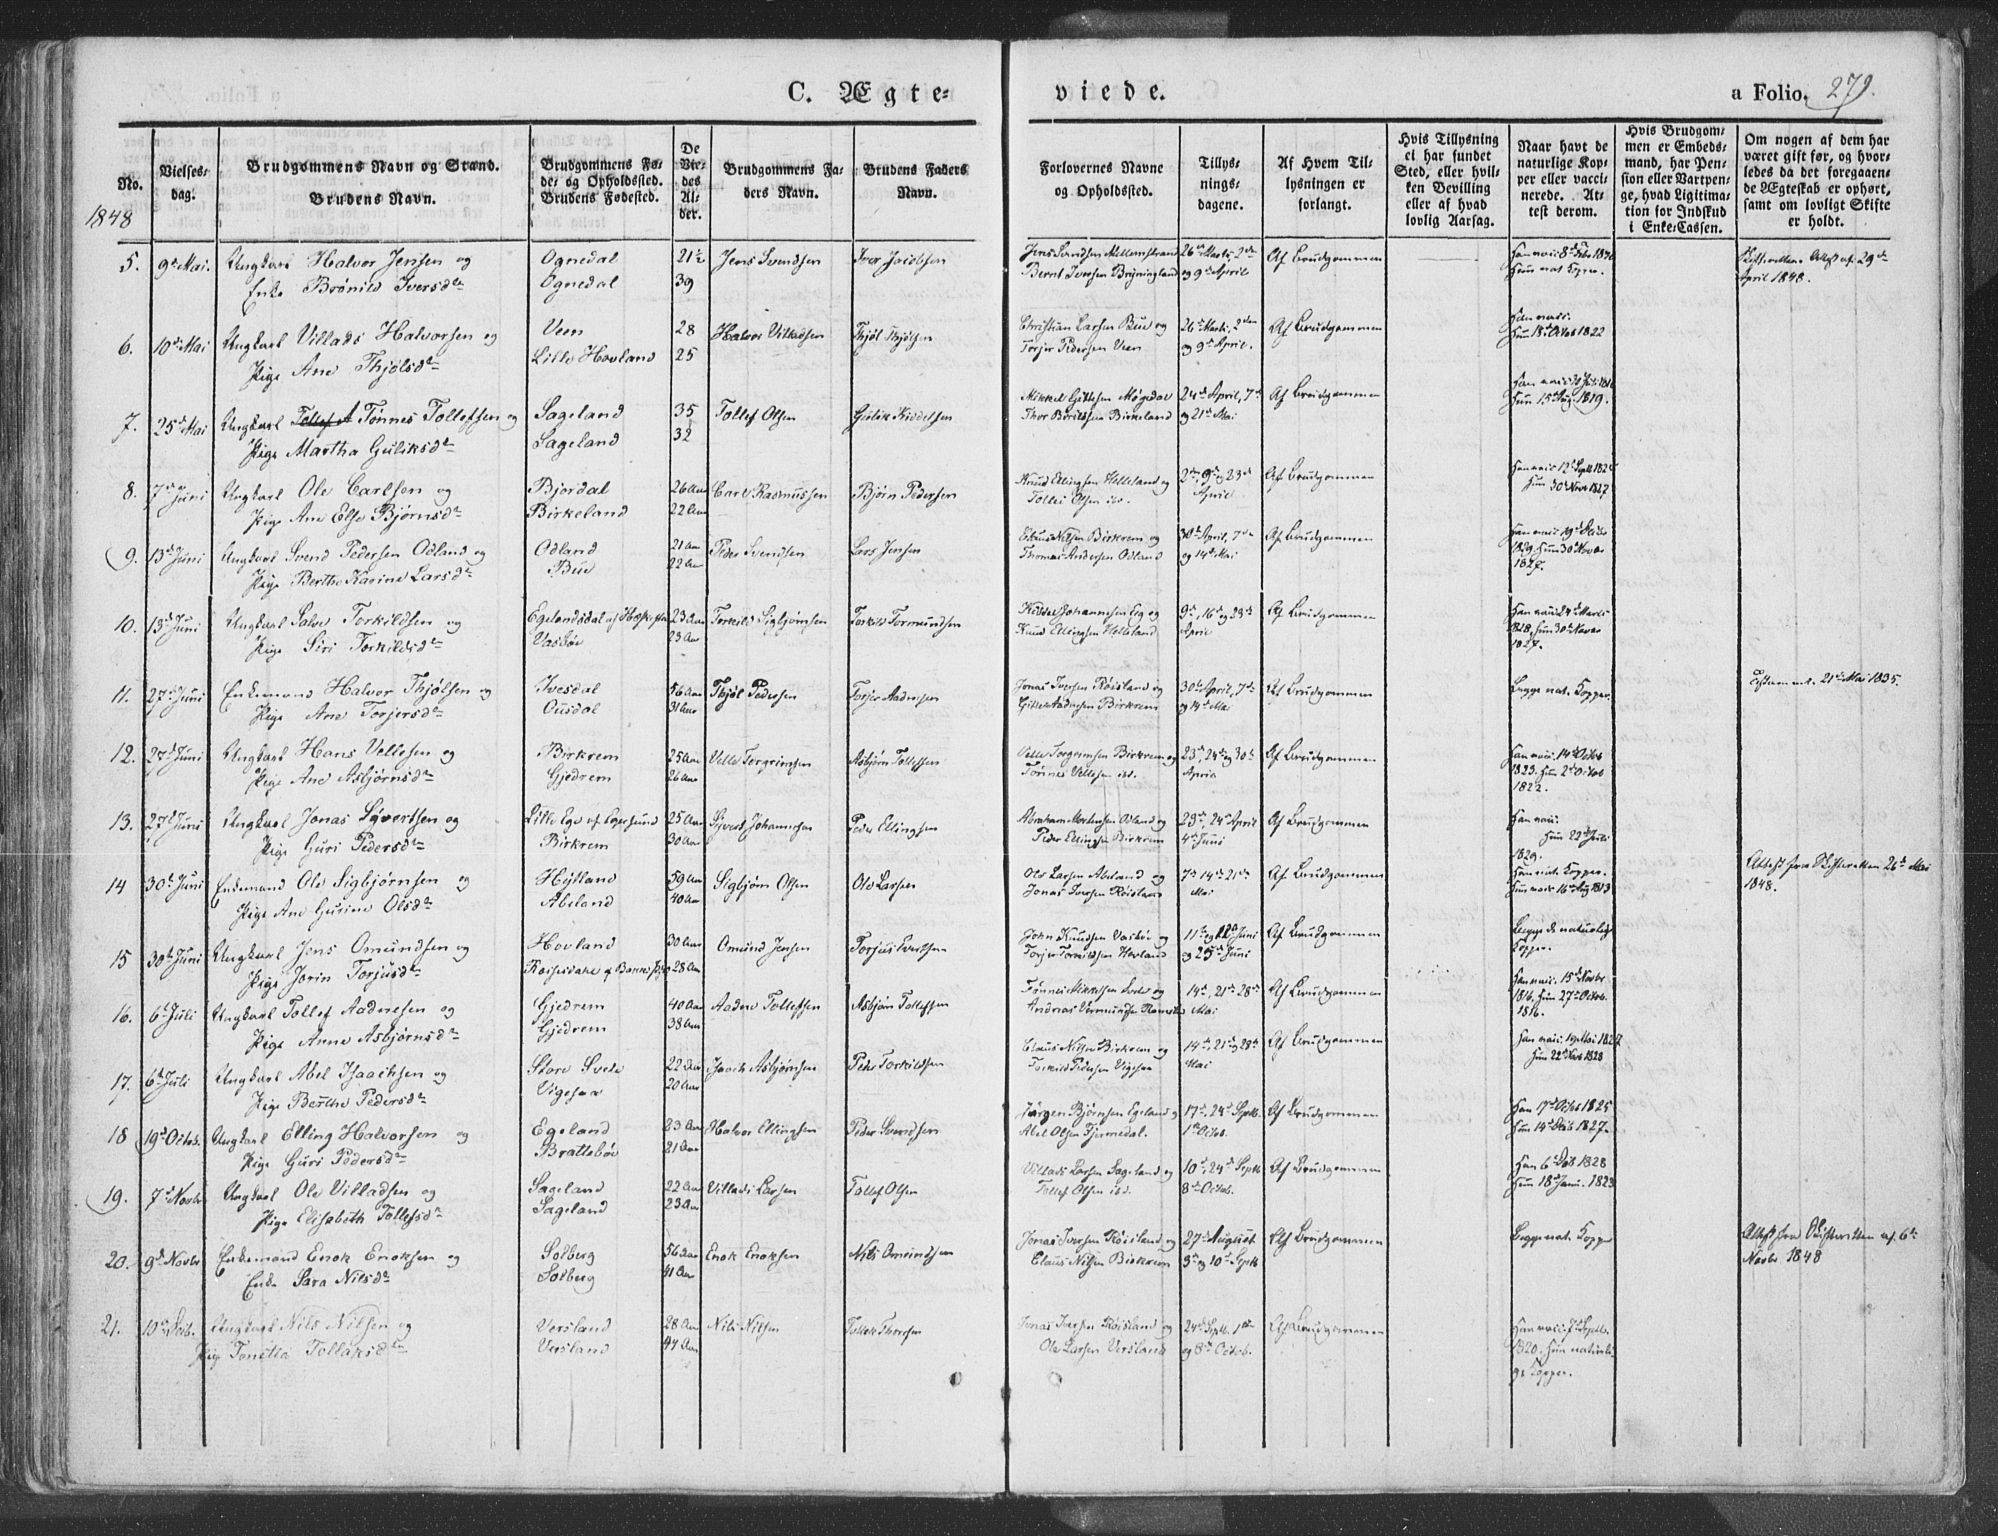 C. Ægte-
viede.
a Folio. 279.
No.
Vielses-
dag.
Brudgommens Navn og Stand.
Brudens Navn.
Brudgommens Fø-
de- og Opholdssted.
Brudens Fødested.
De
Vie-
des
Al-
der.
Brudgommens Fa-
ders Navn.
Brudens Faders
Navn.
Forlovernes Navne
og Opholdssted.
Tillys-
nings-
dagene.
Af Hvem Til-
lysningen er
forlangt.
Hvis Tillysning
ei har fundet
Sted, eller hvil-
ken Bevilling
eller af hvad
lovlig Aarsag.
Naar havt de
naturlige Kop-
per eller vacci-
nerede. At-
test derom.
Hvis Brudgom-
men er Embeds-
mand, har Pen-
sion eller Vartpen-
ge, hvad Ligitima-
tion for Indskud
i Enke-Cassen.
Om nogen af dem har
været gift før, og hvor-
ledes da det foregaaen-
de Ægteskab er ophørt,
samt om lovligt Skifte
er holdt.
1848
5. 9de Mai. Ungkarl Halvor Jensen og Ognedal 21½ Jens Svendsen Iver Jacobsen
Enke Brønild Iversdtr Ognedal 39
Jens Svendsen Mellemstrand 26de Marts, 2den Af Brudgommen
Bernt Iversen Brÿningland og 9de April
Skifterettens Attest af 29de
April 1848.
6. 10de Mai Ungkarl Villads Halvorsen og Veen 28 Halvor Villadsen Thjøl Thjølsen
Pige Ane Thjølsdtr Lille Hovland 25
Christian Larsen Bue og 26de Marts, 2den Af Brudgommen
Torjer Pedersen Veen og 9de April. Hun 18de Octob 1822
7. 25de Mai Ungkarl Tønnes Tollefsen og Sageland 35 Tollef Olsen Gulik Kiddelsen
Pige Martha Guliksdtr Sageland 32
Mikkel Gittlesen Møgedal 24de April, 7de Af Brudgommen
Birkeland og 21de Mai Hun 15de Aug 1819.
8. 7de Juni Ungkarl Ole Carlsen og Bjordal 26 Aar Carl Rasmussen Bjørn Pedersen
Pige Ane Else Bjørnsdtr Birkeland 22 Aar
Knud Ellingsen Helleland og 2den, 9de, 23de Af Brudgommen
Tollef Olsen ibd. April Hun 30de Novb 1827
9. 13de Juni Ungkarl Svend Pedersen Odland og Odland 21 Aar Peder Svendsen Lars Jensen
Pige Berthe Karine Larsdtr Bue 22 Aar
Claus Nilsen Birkrem og 30de April, 7de Af Brudgommen
Thomas Andersen Odland og 14de Mai
1827.
10. 13de Juni Ungkarl Salve Torkildsen og Egelandsdal af Hæskestad 23 Aar Torkild Sigbjørnsen Torkild Tormundsen
Pige Siri Torkildsdtr Vasbøe 23 Aar
Kiddel Johannesen Eeg og 9de, 16de og 23de Af Brudgommen
Knud Ellingsen Helleland April
1827.
11. 27de Juni Enkemand Halvor Thjølsen og Ivesdal 56 Aar Thjøl Pedersen Torjer Aadnesen
Pige Ane Torjersdtr Ousdal 31 Aar
Jonas Iversen Røisland og 30te April, 7de Af Brudgommen Begge nat. Kopper.
Gitle Aadnesen Birkrem og 14de Mai
21de Mai 1835.
12. 27de Juni Ungkarl Hans Vellesen og Birkrem 25 Aar Velle Torgrimsen Asbjørn Tollefsen
Pige Ane Asbjørnsdtr Gjedrem 26 Aar
Velle Torgrimsen Birkrem og 23de, 24de og 30te Af Brudgommen
Tønnes Vellesen ibd. April 1823. Hun 2de Octob
1822.
13. 27de Juni Ungkarl Jonas Sÿvertsen og Lille Ege af Egersund 25 Aar Sÿvert Johannesen Peder Ellingsen
Pige Guri Pedersdtr Birkrem 30 Aar
Abraham Mortensen Odland og 23de, 24de April Af Brudgommen
Peder Ellingsen Birkrem 4de Juni Hun 22de Juli
1829.
14 30te Juni Enkemand Ole Sigbjørnsen og Hÿtland 59 Aar Sigbjørn Olsen Ole Larsen
Pige Ane Gurine Olsdtr Abeland 40 Aar
Ole Larsen Abeland og 7de 14de 21de Af Brudgommen Han nat. Kopper.
Jonas Iversen Røisland Mai Hun vac. 16de Aug 1813
Attest fra Skifteretten 26de Mai
1848.
15 30te Juni Ungkarl Jens Omundsen og Hovland 30 Aar Omund Jensen Torjus Evertsen
Pige Jorin Torjusdtr 28 Aar
John Knudsen Vasbøe og 11te og 12te Juni Af Brudgommen Begge de naturlige
Torjer Torkildsen Hovland og 25de Juni Kopper.
16. 6te Juli Ungkarl Tollef Aadnesen og Gjedrem 40 Aar Aadne Tollefsen Asbjørn Tollefsen
Pige Anne Asbjørnsdtr Gjedrem 38 Aar
Tønnes Mikkelsen og 14de, 21de 28de Af Brudgommen Han vacc. 15de Novbr
Andreas Mai 1816. Hun 27de Octob.
1816.
17. 6te Juli Ungkarl Abel Isaachsen og Store Svele 22 Aar Isaach Asbjørnsen Peder Torkildsen
Pige Berthe Pedersdtr Vigesaa 20 Aar
Claus Nilsen Birkrem og 14de, 21de og 28de Af Brudgommen
Torkild Pedersen Vigesaa Mai Hun 22de Novb 1828
18 19de Octob. Ungkarl Elling Halvorsen og Egeland 23 Aar Halvor Ellingsen Peder Svendsen
Pige Guri Pedersdtr Brattebøe 21 Aar
Jørgen Bjørnsen Egeland og 17de, 24de Septb. Af Brudgommen Han 17de Octob 1825
Abel Olsen Fjermedal. 1ste Octob. Hun 14de 1827.
19. 7de Novbr Ungkarl Ole Villadsen og Sageland 22 Aar Villads Larsen Tollef Olsen
Pige Elisabeth Tollefsdtr Sageland 23 Aar
Villads Larsen Sageland og 10de, 24de Septb Af Brudgommen Han 6te 1828
Tollef Olsen ibd. 8de Octob. Hun 18de Juni. 1823
20. 9de Novbr Enkemand Enok Enoksen og Solberg 56 Aar Enok Enoksen Nils Omundsen
Enke Sara Nilsdtr Solberg 41 Aar
Jonas Iversen Røisland og 27de August Af Brudgommen Begge nat. Kopper
Claus Nilsen Birkrem 3de og 10de Septb
Attest fra Skifteretten af 6te
Novbr 1848
21. 10de Decb. Ungkarl Nils Nilsen og Versland 28 Aar Nils Nilsen Tollak Thorsen
Pige Tonetta Tollaksdtr Versland 44 Aar
Jonas Iversen Røisland og 24de Septb. 1ste Af Brudgommen Han vacc. 7de Septb.
Ole Larsen Versland og 8de Octob. 1820. Hun naturli-
ge Kopper.